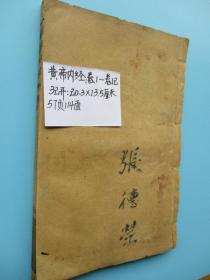 黄帝内经:卷1一卷12
32开:20.3×13.5厘米
57页114面
張德榮